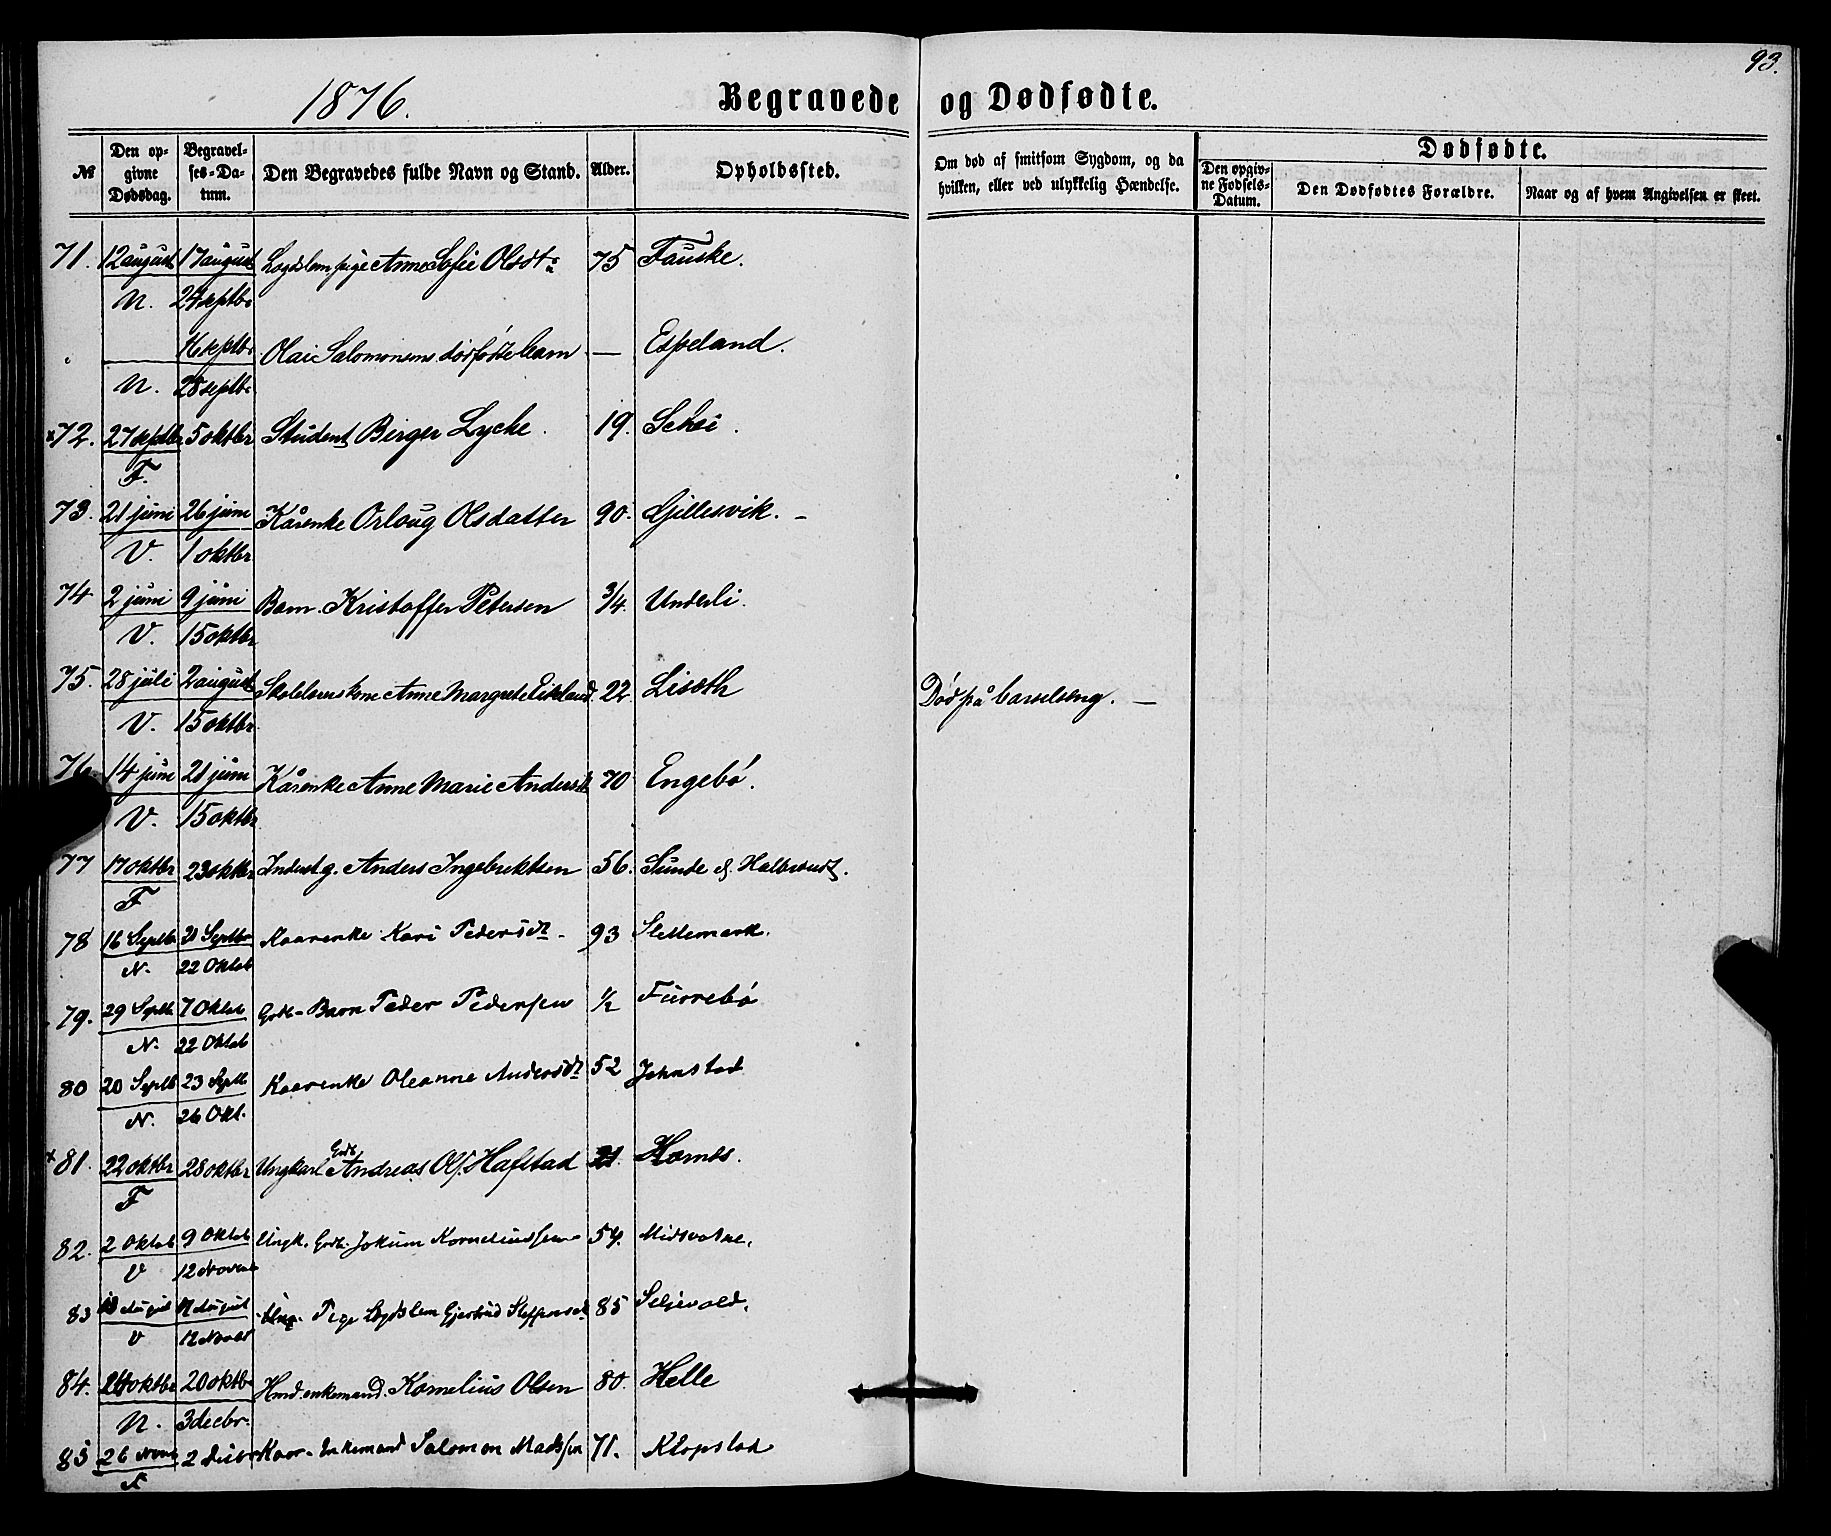 93.
1876. Begravede og Dødfødte.
№ Den opgivne Dødsdag. Begravelses-Datum. Den Begravedes fulde Navn og Stand. Alder. Opholdssted. Om død af smitsom Sygdom, og da hvilken, eller ved ulykkelig Hændelse. Dødfødte.
Den opgivne Fødsels-Datum. Den Dødfødtes Forældre. Naar og af hvem Angivelsen er skeet.
71. 12 august 17 august Lægdslem, pige Anne Sofie Olsdtr 75 Fauske.
N. 24 septbr
16 septbr Olai Salomonsens dødfødte barn — Espeland.
N. 28 septbr
×72. 27 septbr 5 oktbr Student Berger Lycke. 19. Schei.
F.
73. 21 juni 26 juni Kårenke Orloug Olsdatter 90. Gjillesvik. —
V. 1 oktbr
74 2 juni 9 juni Barn. Kristoffer Petersen 3/4. Underli.
V. 15 oktbr
75. 28 juli 2 august Anne Margrete Eikeland. 22. Liseth Død på barselseng. —
V. 15 oktbr
76 14 juni 21 juni Kårenke Anne Marie Andersdt 70 Engebø.
V. 15 oktbr
77 17 oktbr 23 oktbr Inderstg. Anders Ingebrektsen 56. Sunde
F
78 16 Septb 21 Septbr Kaarenke Kari Pedersdt 93 Slettemark.
N. 22 Oktob
79. 29 Septb 7 Oktob Grdb. Barn Peder Pedersen 1/2 Furrebø
N. 22 Oktob
80 20 Septb 23 Septb Kaarenke Oleanne Andersdt 52 Johnstad
N. 26 Okt.
×81. 22 oktbr 28 oktbr Ungkarl Grdb. Andreas Ols. Hafstad 21. Hornes.
F
82. 2 Oktob 9 Oktob Ungk. Grdb. Jokum Korneliussen 54. Midvatne.
V 12 Novemb
83 August 17 August Pige Lægdslem Gjertrud Steffensdt. 85 Seljevold.
V 12 Novbr
84. 14 oktbr 20 oktbr Husd. enkemand. Kornelius Olsen 80. Helle
N. 3 decbr.
85 26 Novb 2 Decbr Kaar-Enkemand Salomon Madssen 71. Klopstad
F